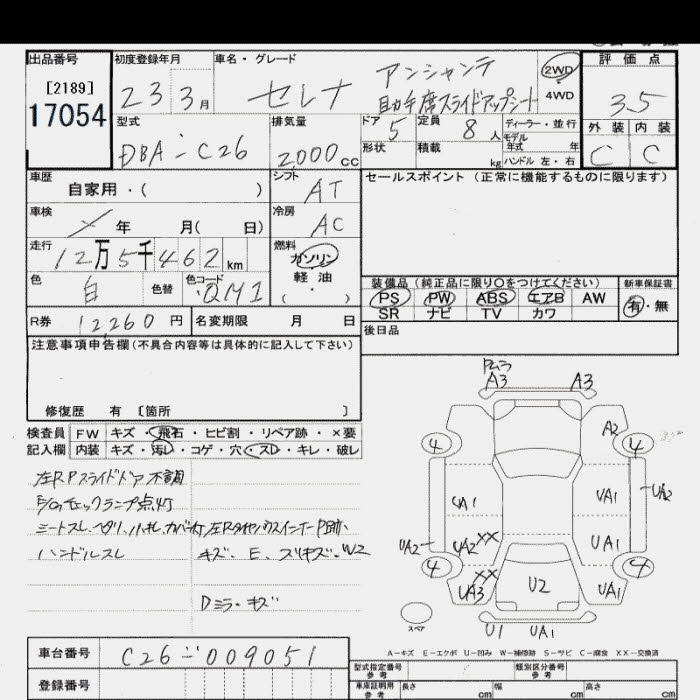 出品番号
[2189]
17054
初度登録年月
23 3月
車名・グレード
セレナ
アンシャンテ
助手席スライドアップシート
2WD
4WD
評価点
3.5
外装 内装
C C
型式
DBA-C26
排気量
2,000cc
ドア 5
定員 8人
ディーラー・並行
モデル年式 年
形状
積載 kg
ハンドル 左・右
車歴
自家用・( )
シフト AT
セールスポイント(正常に機能するものに限ります)
車検
年 月( 日)
冷房 AC
走行
12万5千462km
燃料
ガソリン
軽油
( ・ )
色 白
色替
色コード QM1
装備品(純正品に限り○をつけてください)
新車保証書
PS PW ABS エアB AW
有・無
SR ナビ TV カワ
R券 12,260円
名変期限 月 日
後日品
注意事項申告欄(不具合内容等は具体的に記入して下さい)
修復歴 有 [箇所 ]
検査員 FW キズ・飛石・ヒビ割・リペア跡・×要
記入欄 内装 キズ・汚レ・コゲ・穴・スレ・キレ・破レ
左RPスライドドア不調
E/Gチェックランプ点灯
ハンドルスレ
キズ、E、スリキズ、W2
Dミラーキズ
Fムラ
A3 A3
A2
4 4
UA1 UA1
UA2
UA2 UA2 XX UA1
4 4
XX
UA3 U2 UA1
スペア
U1 UA1
A-キズ E-エクボ U-凹み W-補修跡 S-サビ C-腐食 XX-交換済
車台番号 C26-009051
登録番号
型式指定番号 参考
類別区分番号 参考
車庫証明用 参考
長さ cm
幅 cm
高さ cm